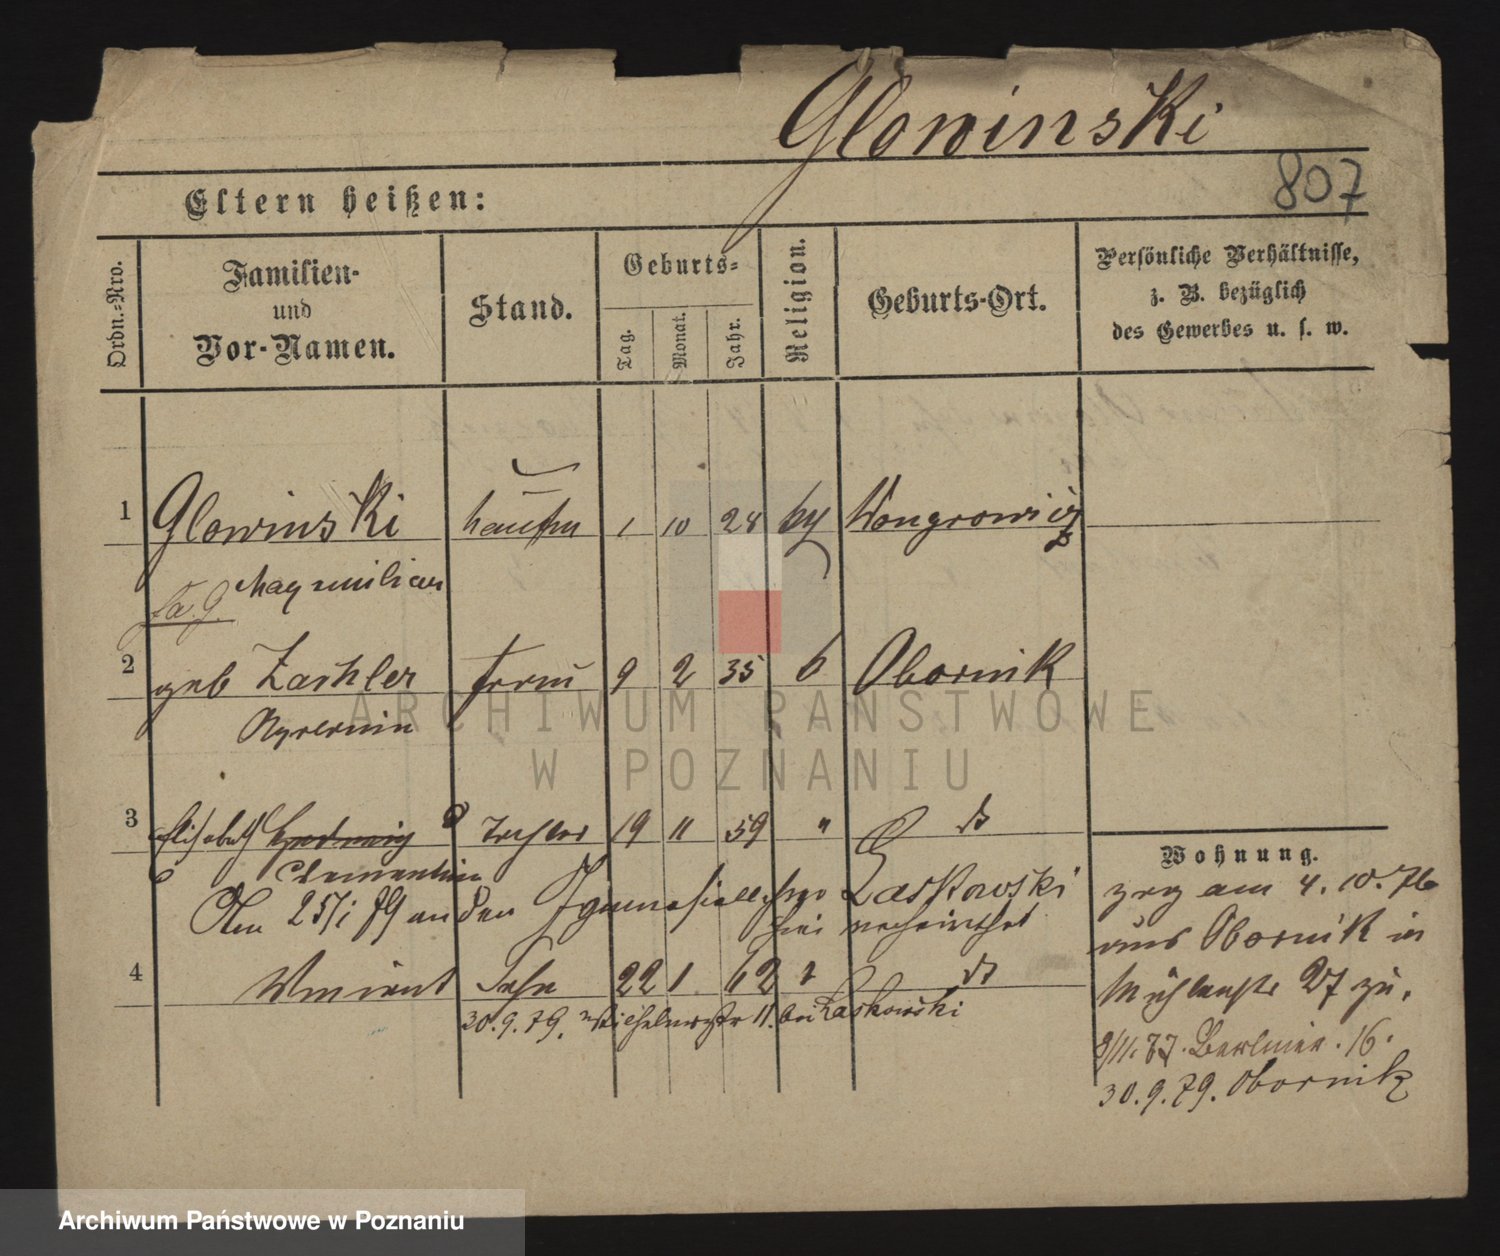 Glowinski
807
Eltern heißen:
Ordn.-Nro.
Familien-
und
Vor-Namen.
Stand.
Geburts-
Tag.
Monat.
Jahr.
Religion.
Geburts-Ort.
Persönliche Verhältnisse,
z. B. bezüglich
des Gewerbes u. s. w.
1 Glowinski 1 10 28 Wongrowicz
Maxymilian
2 geb Zachler Frau 9 2 35 Obornik
3 Elisabeth Hedwig Tochter 19 11 59 "
Clementine
Am 25/1 79 an den Gymnasiallehrer Laskowski
hier verheirathet
4 Vincent Sohn 22 1 62
30.9.79. Wilhelmstr 11. bei Laskowski
Wohnung.
zog am 4. 10. 76
aus Obornik in
Mühlenstr 27 zu.
9/11. 77. Berliner. 16.
30.9.79. Obornik
ARCHIWUM PAŃSTWOWE
W POZNANIU
Archiwum Państwowe w Poznaniu